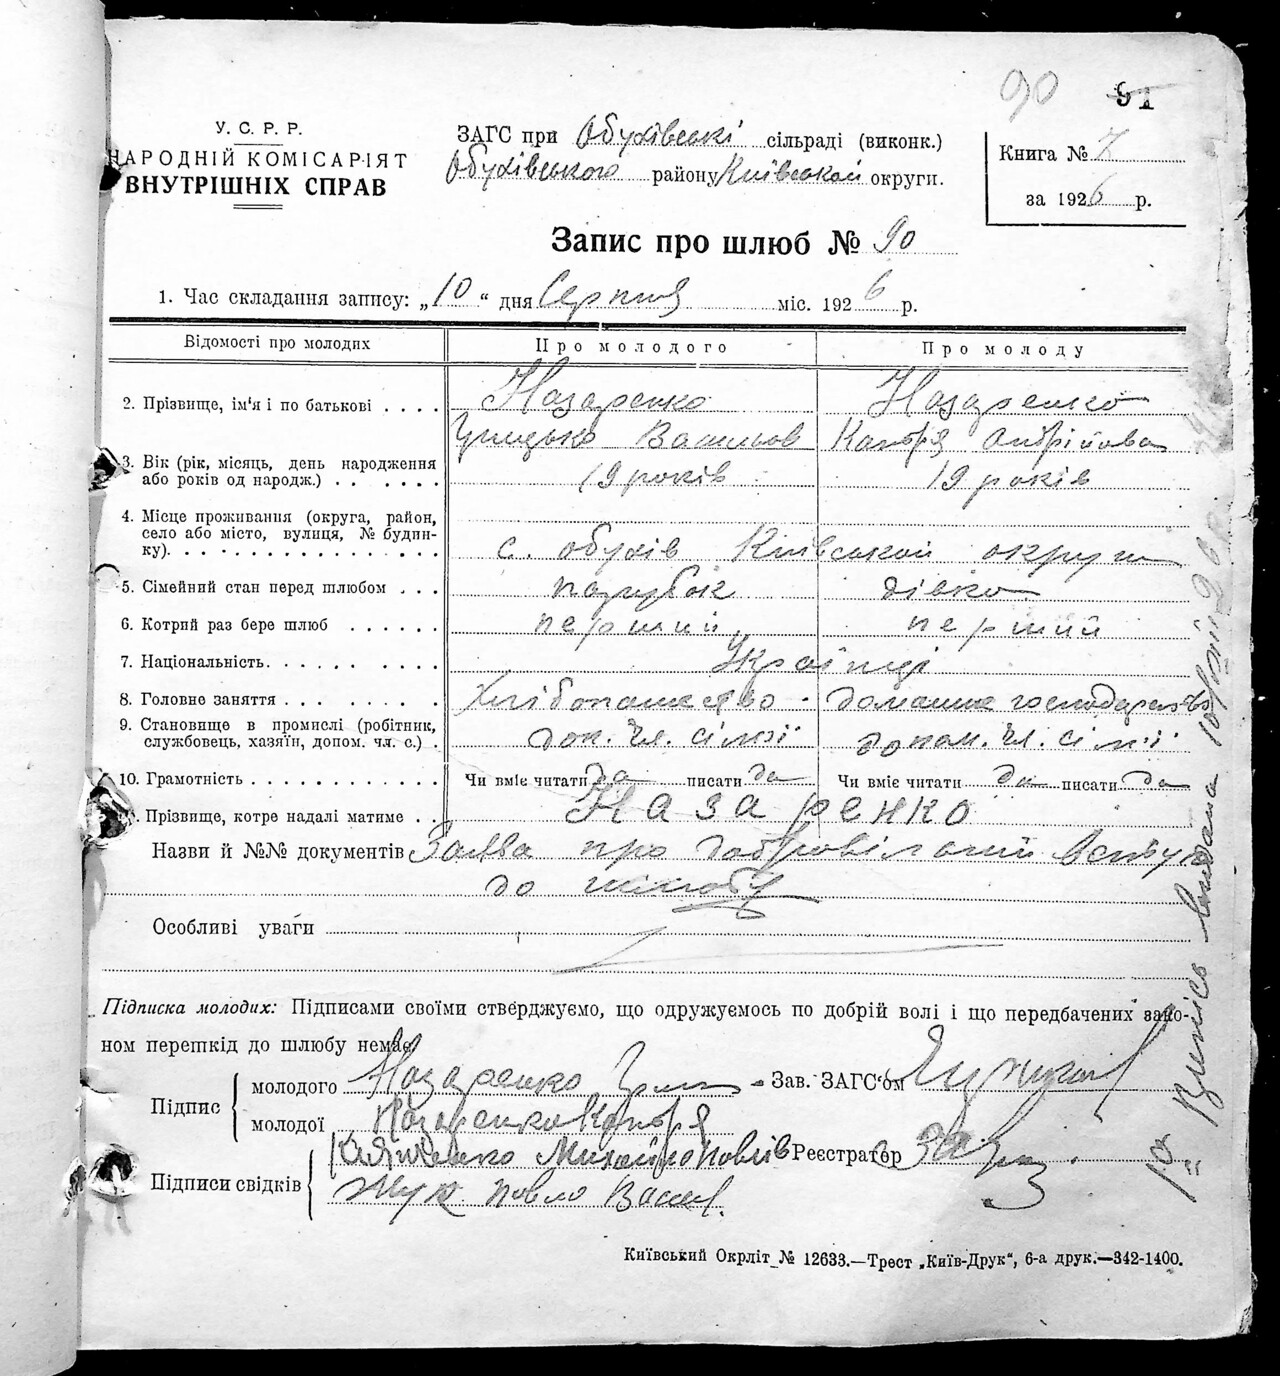 90 91
У. С. Р. Р.
НАРОДНІЙ КОМІСАРІЯТ
ВНУТРІШНІХ СПРАВ
ЗАГС при Обухівські сільраді (виконк.)
Обухівського району Київської округи.
Книга № 7
за 1926 р.
Запис про шлюб № 90
1. Час складання запису: „10“ дня Серпня міс. 1926 р.
Відомості про молодих Про молодого Про молоду
2. Прізвище, ім'я і по батькові . . . . Назаренко Назаренко
Грицько Васильов Андрійова
3. Вік (рік, місяць, день народження
або років од народж.) . . . . . . 19 років 19 років
4. Місце проживання (округа, район,
село або місто, вулиця, № будин-
ку). с. Обухів Київської округи
5. Сімейний стан перед шлюбом . . . парубок дівка
6. Котрий раз бере шлюб . . . . . . перший перший
7. Національність. Українці
8. Головне заняття Хлібопашество домашнє господарство
9. Становище в промислі (робітник,
службовець, хазяїн, допом. чл. с.) . доп. чл. сім'ї допом. чл. сім'ї
10. Грамотність Чи вміє читати да писати да Чи вміє читати да писати да
Прізвище, котре надалі матиме . . Назаренко
Назви й №№ документів Заява про добровільний вступ
до шлюбу
Особливі уваги
Підписка молодих: Підписами своїми стверджуємо, що одружуємось по добрій волі і що передбачених зако-
ном перешкід до шлюбу немає
Підпис
молодого Назаренко Зав. ЗАГС'ом
молодої Назаренко
Підписи свідків
Михайло Павлів Реєстратор
Жук Павло Васил.
Київський Окрліт № 12633.—Трест „Київ-Друк“, 6-а друк.—342-1400.
Випись видана